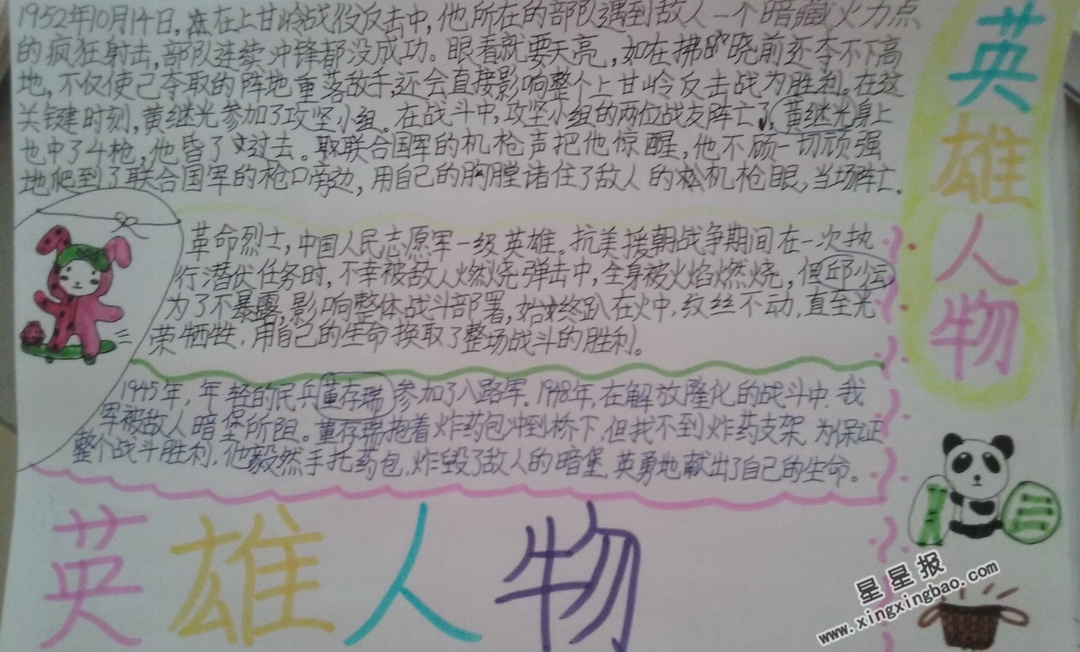 1952年10月14日,在上甘岭战役反击中,他所在的部队遇到敌人一个暗藏火力点
的疯狂射击,部队连续冲锋都没成功。眼看就要天亮,如在拂晓前还夺不下高
地,不仅使己夺取的阵地重落敌手,还会直接影响整个上甘岭反击战为胜利。在这
关键时刻,黄继光参加了攻坚小组。在战斗中,攻坚小组的两位战友阵亡了,黄继光身上
也中了4枪,他昏了过去。联合国军的机枪声把他惊醒,他不顾一切顽强
地爬到了联合国军的枪口旁边,用自己的胸膛堵住了敌人的机枪眼,当场阵亡。
革命烈士,中国人民志愿军一级英雄。抗美援朝战争期间在一次执
行潜伏任务时,不幸被敌人燃烧弹击中,全身被火焰燃烧,但邱少云
为了不暴露,影响整体战斗部署,始终趴在火中,纹丝不动,直至光
荣牺牲,用自己的生命换取了整场战斗的胜利。
1945年,年轻的民兵董存瑞参加了八路军.1948年,在解放隆化的战斗中.我
军被敌人暗堡所阻。董存瑞抱着炸药包冲到桥下,但找不到炸药支架,为保证
整个战斗胜利.他毅然手托药包,炸毁了敌人的暗堡,英勇地献出了自己的生命。
英雄人物
英
雄
人
物
星星报
www.xingxingbao.com